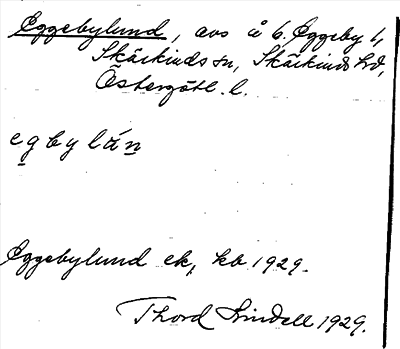 Eggebylund, avs å 6. Eggeby 1,
Skärkinds sn, Skärkinds hd,
Östergötl. l.
egbylán
Eggebylund ek, kb 1929.
Thord Lindell 1929.